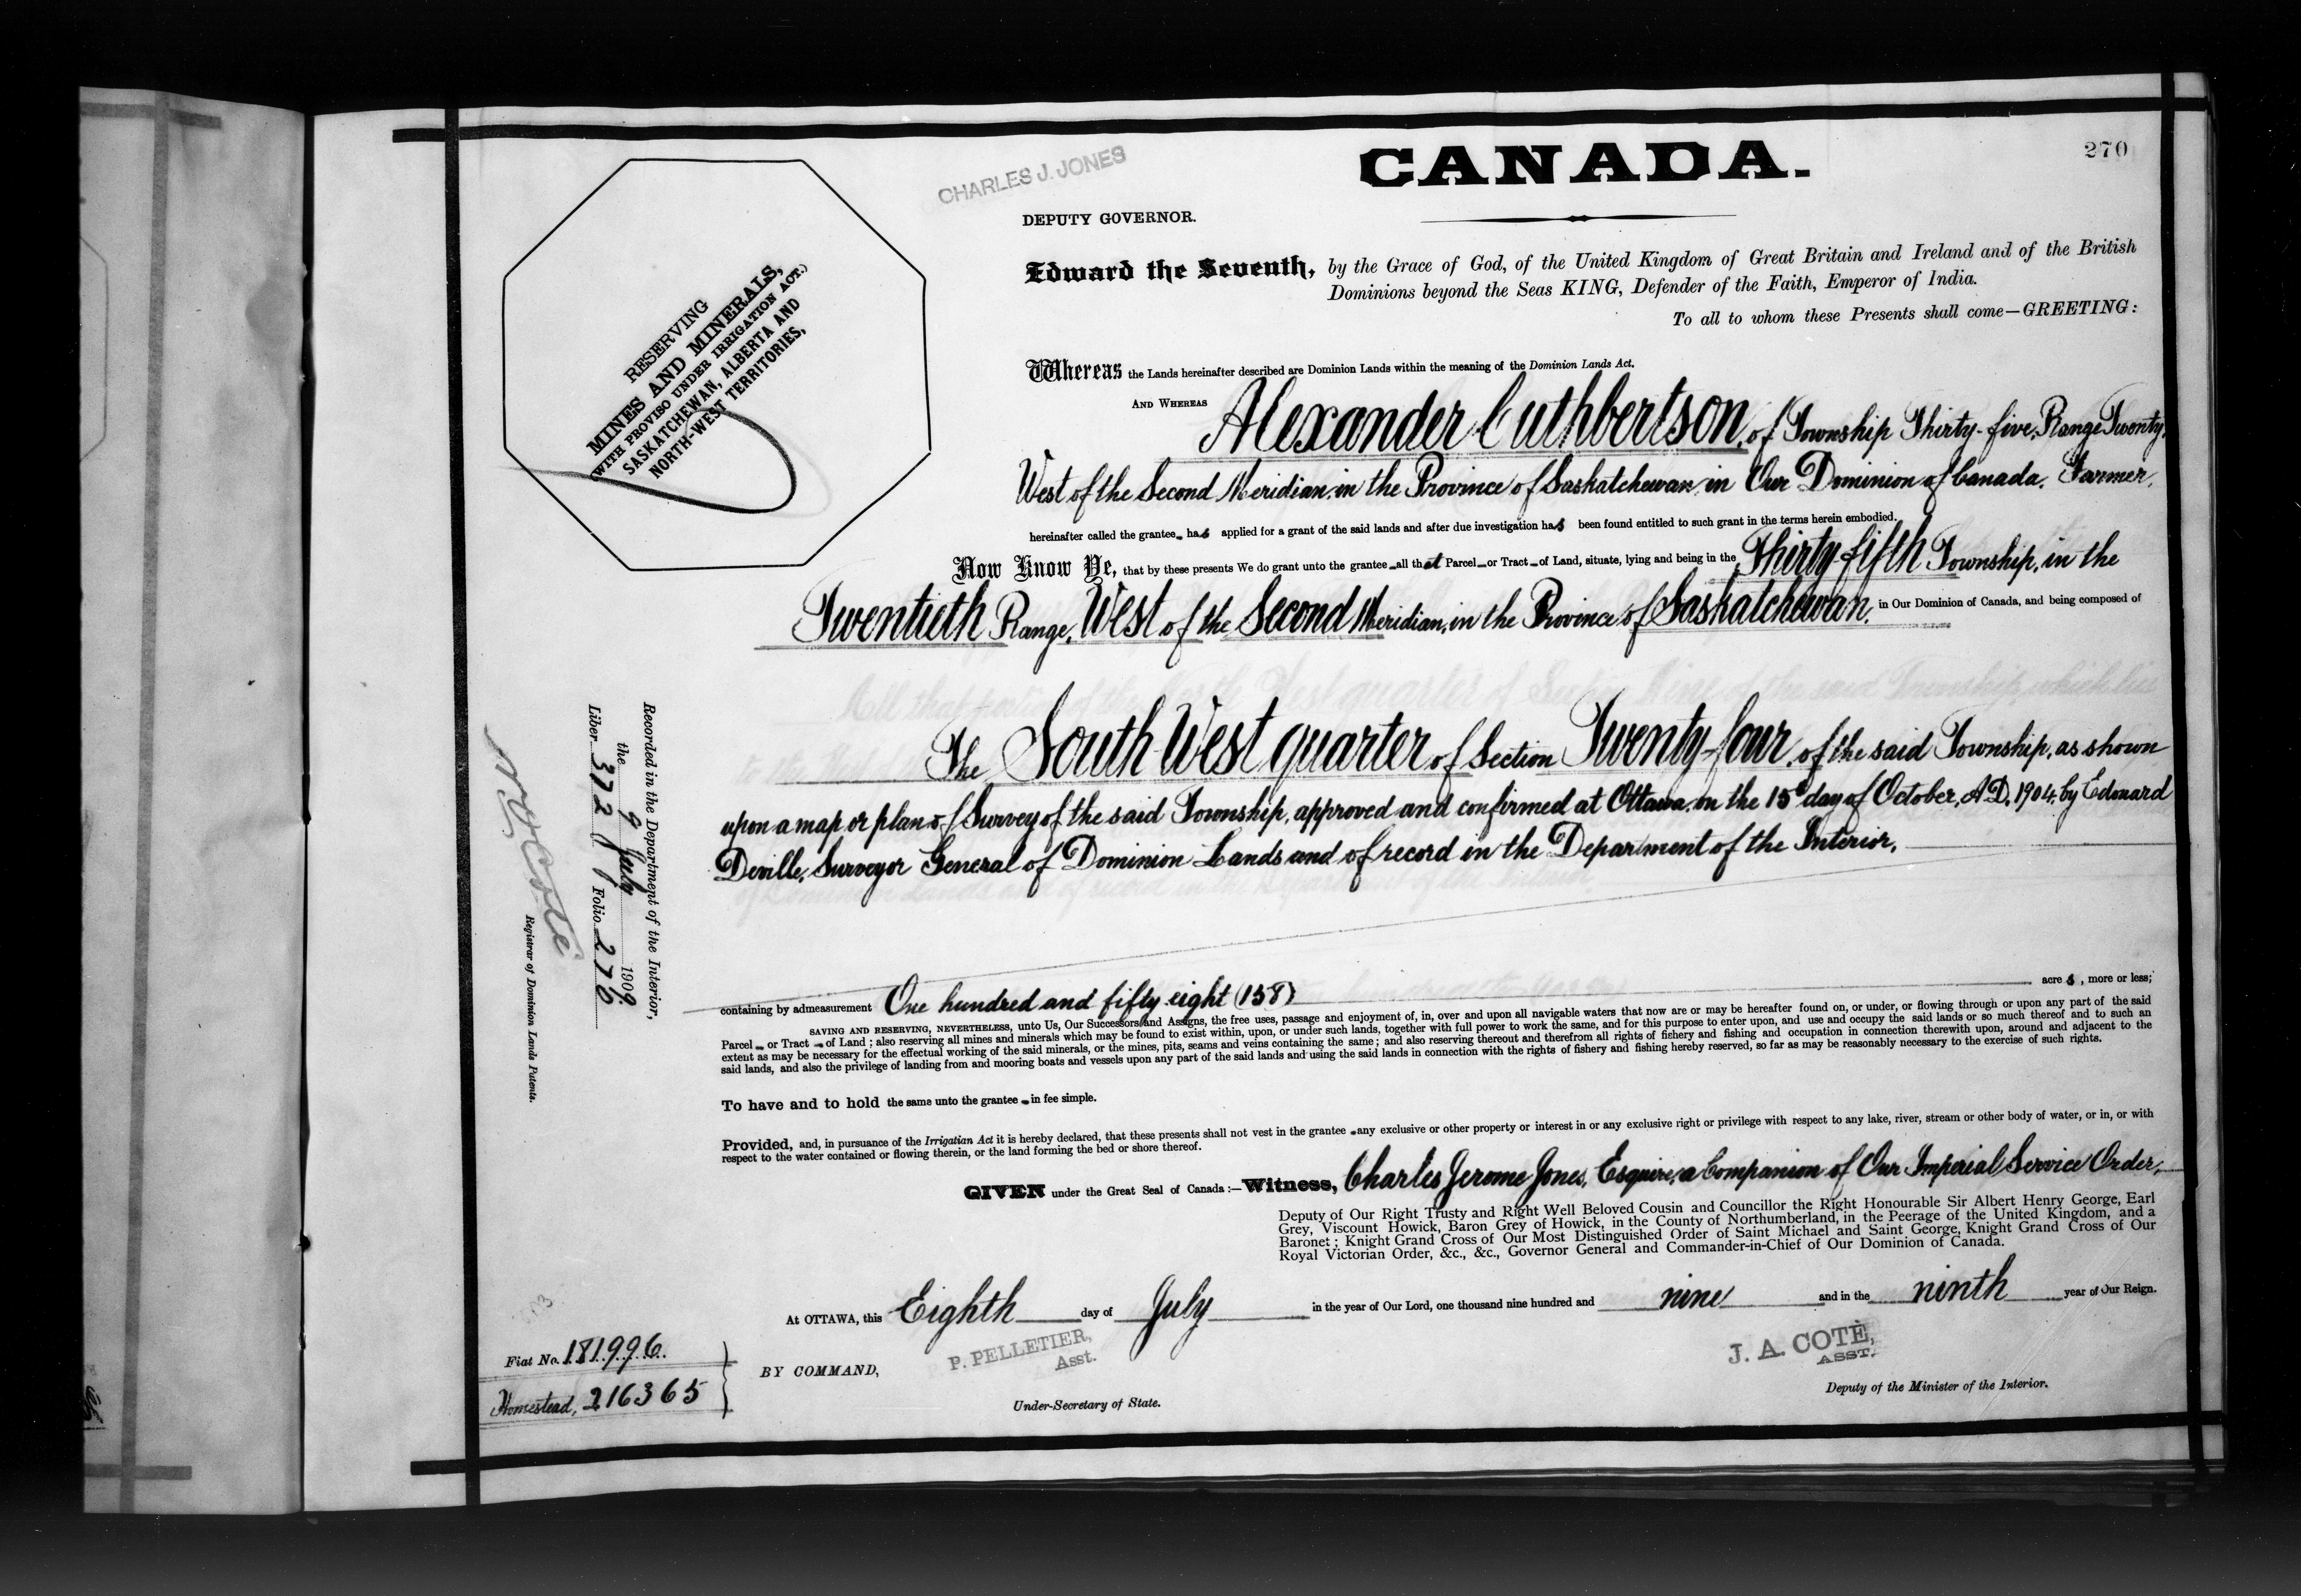 270
CANADA.
CHARLES J. JONES
DEPUTY GOVERNOR.
RESERVING
MINES AND MINERALS,
(WITH PROVISO UNDER IRRIGATION ACT.)
SASKATCHEWAN, ALBERTA AND
NORTH-WEST TERRITORIES,
Edward the Seventh, by the Grace of God, of the United Kingdom of Great Britain and Ireland and of the British
Dominions beyond the Seas KING, Defender of the Faith, Emperor of India.
To all to whom these Presents shall come—GREETING:
Whereas the Lands hereinafter described are Dominion Lands within the meaning of the Dominion Lands Act.
AND WHEREAS Alexander Cuthbertson, of Township Thirty-five, Range Twenty,
West of the Second Meridian, in the Province of Saskatchewan, in Our Dominion of Canada, Farmer,
hereinafter called the grantee has applied for a grant of the said lands and after due investigation has been found entitled to such grant in the terms herein embodied.
Now Know Ye, that by these presents We do grant unto the grantee all that Parcel or Tract of Land, situate, lying and being in the Thirty fifth Township, in the
Twentieth Range, West of the Second Meridian, in the Province of Saskatchewan, in Our Dominion of Canada, and being composed of
The South West quarter of Section Twenty-four, of the said Township, as shown
upon a map or plan of Survey of the said Township, approved and confirmed at Ottawa, on the 15th day of October, A.D. 1904, by Edouard
Deville, Surveyor General of Dominion Lands and of record in the Department of the Interior,
containing by admeasurement One hundred and fifty eight (158) acres, more or less;
SAVING AND RESERVING, NEVERTHELESS, unto Us, Our Successors and Assigns, the free uses, passage and enjoyment of, in, over and upon all navigable waters that now are or may be hereafter found on, or under, or flowing through or upon any part of the said
Parcel or Tract of Land; also reserving all mines and minerals which may be found to exist within, upon, or under such lands, together with full power to work the same, and for this purpose to enter upon, and use and occupy the said lands or so much thereof and to such an
extent as may be necessary for the effectual working of the said minerals, or the mines, pits, seams and veins containing the same; and also reserving thereout and therefrom all rights of fishery and fishing and occupation in connection therewith upon, around and adjacent to the
said lands, and also the privilege of landing from and mooring boats and vessels upon any part of the said lands and using the said lands in connection with the rights of fishery and fishing hereby reserved, so far as may be reasonably necessary to the exercise of such rights.
To have and to hold the same unto the grantee in fee simple.
Provided, and, in pursuance of the Irrigatian Act it is hereby declared, that these presents shall not vest in the grantee any exclusive or other property or interest in or any exclusive right or privilege with respect to any lake, river, stream or other body of water, or in, or with
respect to the water contained or flowing therein, or the land forming the bed or shore thereof.
GIVEN under the Great Seal of Canada:—Witness, Charles Jerome Jones, Esquire, a Companion of Our Imperial Service Order,
Deputy of Our Right Trusty and Right Well Beloved Cousin and Councillor the Right Honourable Sir Albert Henry George, Earl
Grey, Viscount Howick, Baron Grey of Howick, in the County of Northumberland, in the Peerage of the United Kingdom, and a
Baronet; Knight Grand Cross of Our Most Distinguished Order of Saint Michael and Saint George, Knight Grand Cross of Our
Royal Victorian Order, &c., &c., Governor General and Commander-in-Chief of Our Dominion of Canada.
At OTTAWA, this Eighth day of July in the year of Our Lord, one thousand nine hundred and nine and in the ninth year of Our Reign.
BY COMMAND,
P. PELLETIER,
Asst.
Under-Secretary of State.
J. A. COTÉ,
ASST.
Deputy of the Minister of the Interior.
Recorded in the Department of the Interior,
the 9 July 1909.
Liber 372 Folio 270
Registrar of Dominion Lands Patents.
Fiat No. 181996.
Homestead, 216365